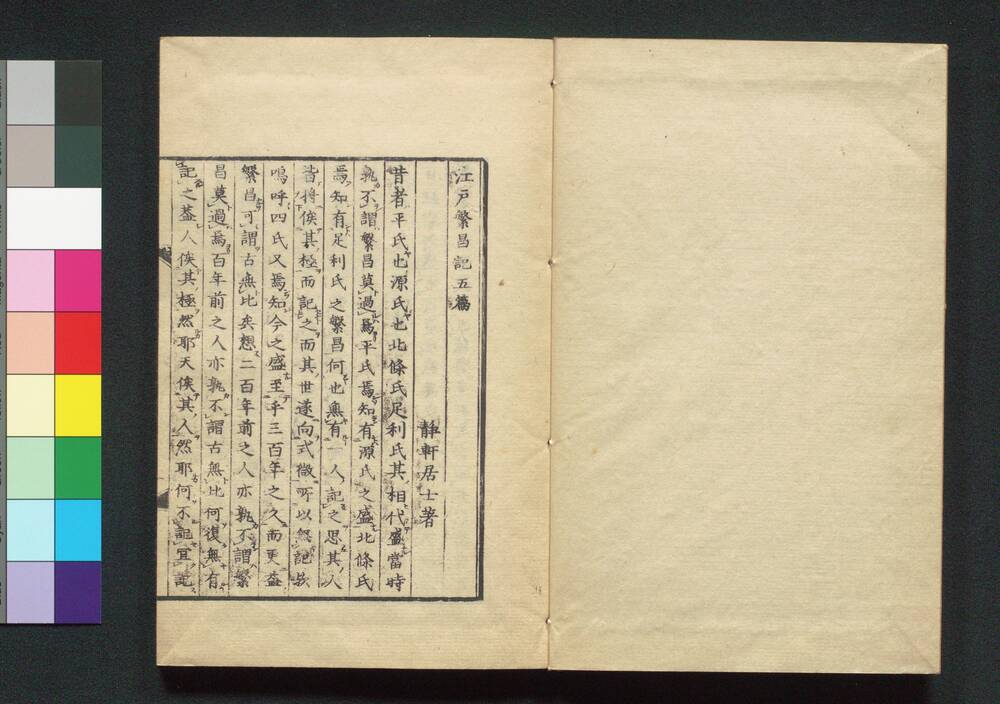 江戸繁昌記五編
靜軒居士著
昔者平氏也源氏也北條氏足利氏其相代盛當時
孰不謂繁昌莫過焉平氏焉知有源氏之盛北條氏
焉知有足利氏之繁昌何也無有一人記之思其人
皆將俟其極而記之而其世遂向式微所以無記歟
嗚呼四氏又焉知今之盛至乎三百年之久而更益
繁昌可謂古無比矣想二百年前之人亦孰不謂繁
昌莫過焉百年前之人亦孰不謂古無比何復無有
記之蓋人俟其極然耶天俟其人然耶何不記宜記